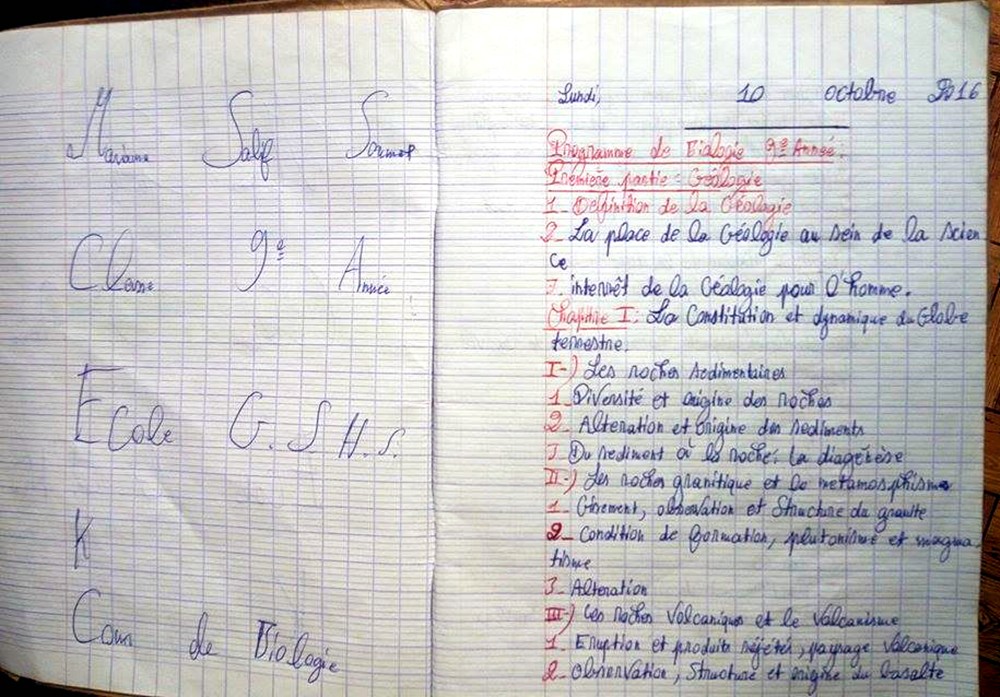 Mariame Salif Soumah
Classe 9e Année
Ecole G.S.H.S.
K
Cours de Biologie
Lundi, 10 octobre 2016
Programme de Biologie 9e Année.
Première partie : Géologie
1_ Définition de la Géologie
2_ La place de la Géologie au sein de la scien
ce
3_ interrêt de la Géologie pour l'homme.
Chapitre I : La Constitution et dynamique du Globe
terrestre.
I-) Les roches sedimentaires
1_ Diversité et origine des roches
2_ Alteration et origine des sediments
3_ Du sediment à la roche : la diagénèse
II-) Les roches granitique et le metamosphisme
1_ Gisement, observation et Structure du granite
2_ Condition de formation, plutonisme et magma
tisme
3_ Alteration
III-) Les roches Volcaniques et le Valcanisme
1_ Eruption et produits réjétés, paysage Valcanique
2_ Observation, Structure et origine du basalte